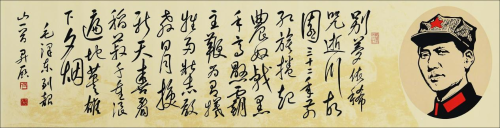 别夢依稀
咒逝川故
園三十二年前
红旗捲起
農奴戟黑
手高懸霸
主鞭為有犧
牲多壮志敢
教日月换
新天喜看
稻菽千重浪
遍地英雄
下夕烟
毛泽东到韶
山